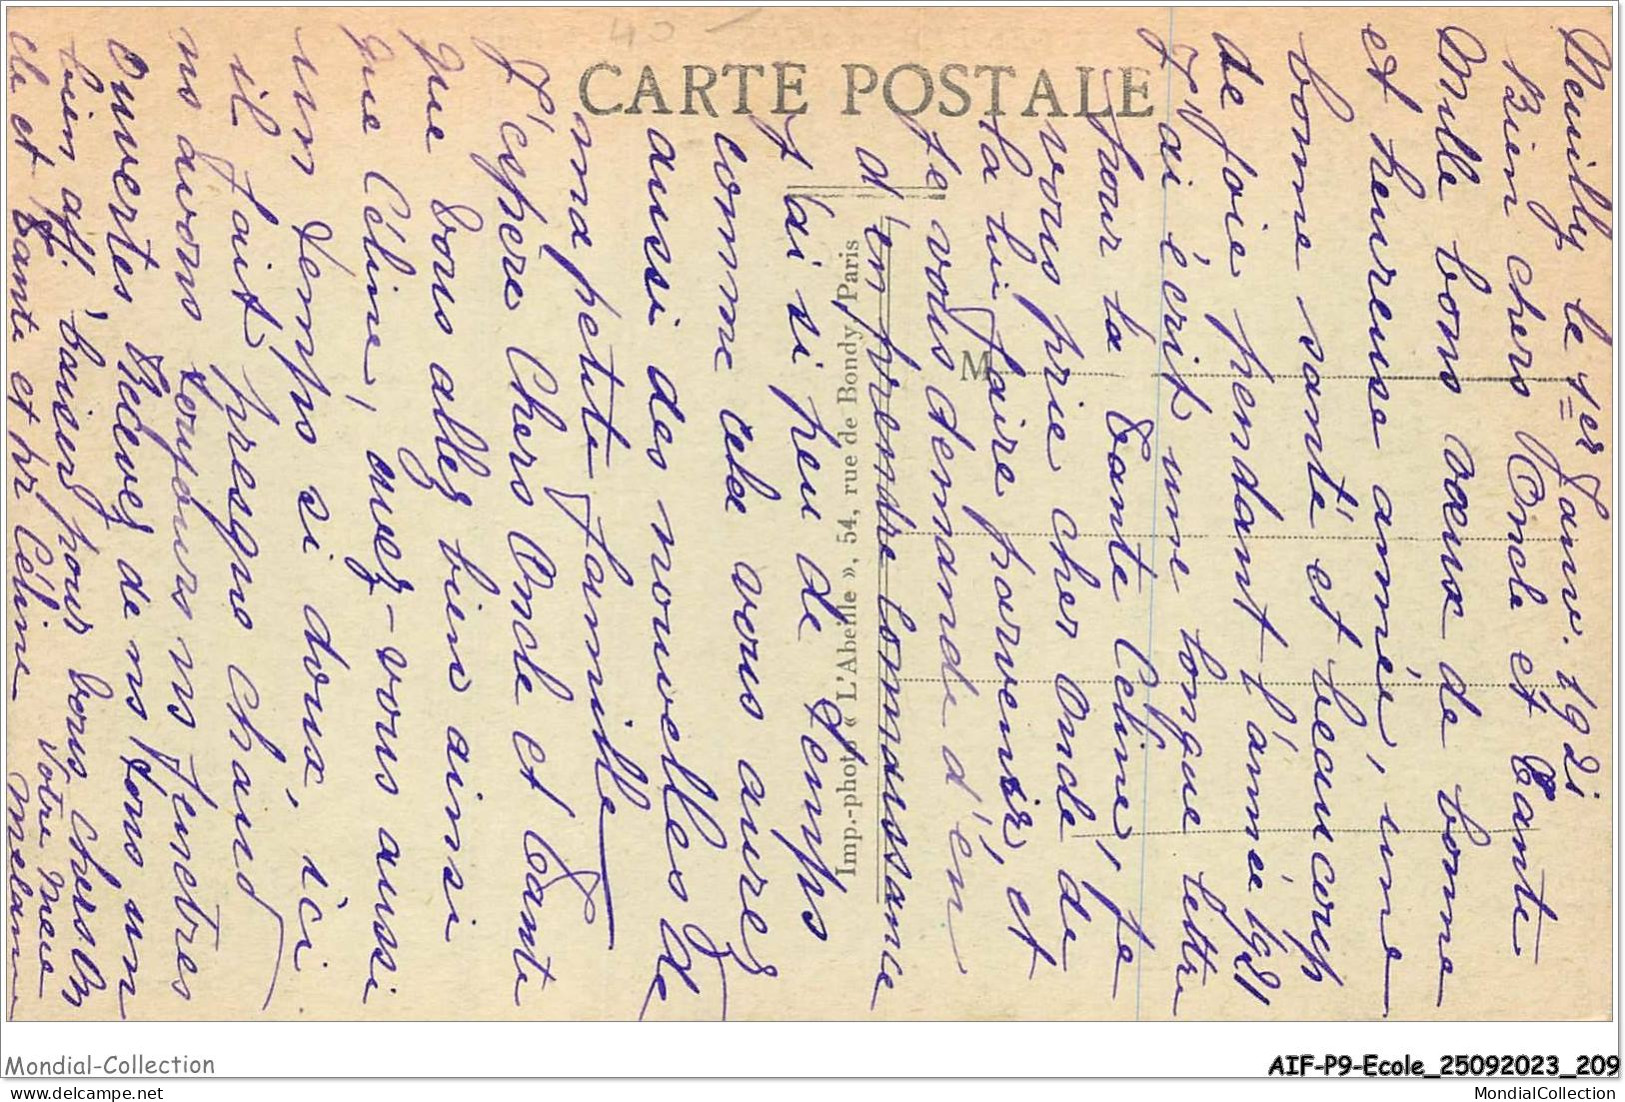 CARTE POSTALE
Imp.-photo « L'Abeille », 54, rue de Bondy, Paris
M
Neuilly le 1er Janv. 1921
Bien chers Oncle et Tante
Mille bons vœux de bonne
et heureuse année, une
bonne santé et beaucoup
de joie pendant l'année 1921
J'ai écrit une longue lettre
pour la Tante Celine, je
vous prie cher Oncle de
la lui faire parvenir, et
je vous demande d'en
d'en prendre connaissance
j'ai si peu de temps
comme cela vous aurez
aussi des nouvelles de
ma petite famille
J'espère Chers Oncle et Tante
que vous allez bien ainsi
que Céline, avez-vous aussi
un temps si doux, ici
il fait presque chaud
ns avons toujours ns fenetres
ouvertes. Recevez de ns tous un
bien aff. baiser pour vous chers On
cle et Tante et pr Céline Votre Nièce
Mélanie
Mondial-Collection
AIF-P9-Ecole_25092023_209
www.delcampe.net
MondialCollection